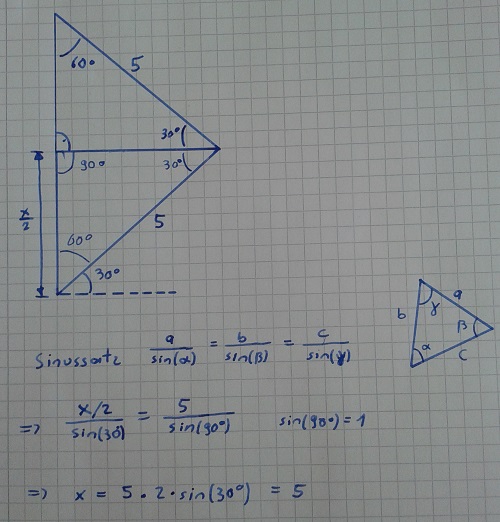 60°
5
30°
90°
30°
x/2
5
60°
30°
a
b
γ
β
α
c
Sinussatz a/sin(α) = b/sin(β) = c/sin(γ)
=> x/2/sin(30) = 5/sin(90°) sin(90°) = 1
=> x = 5 · 2 · sin(30°) = 5